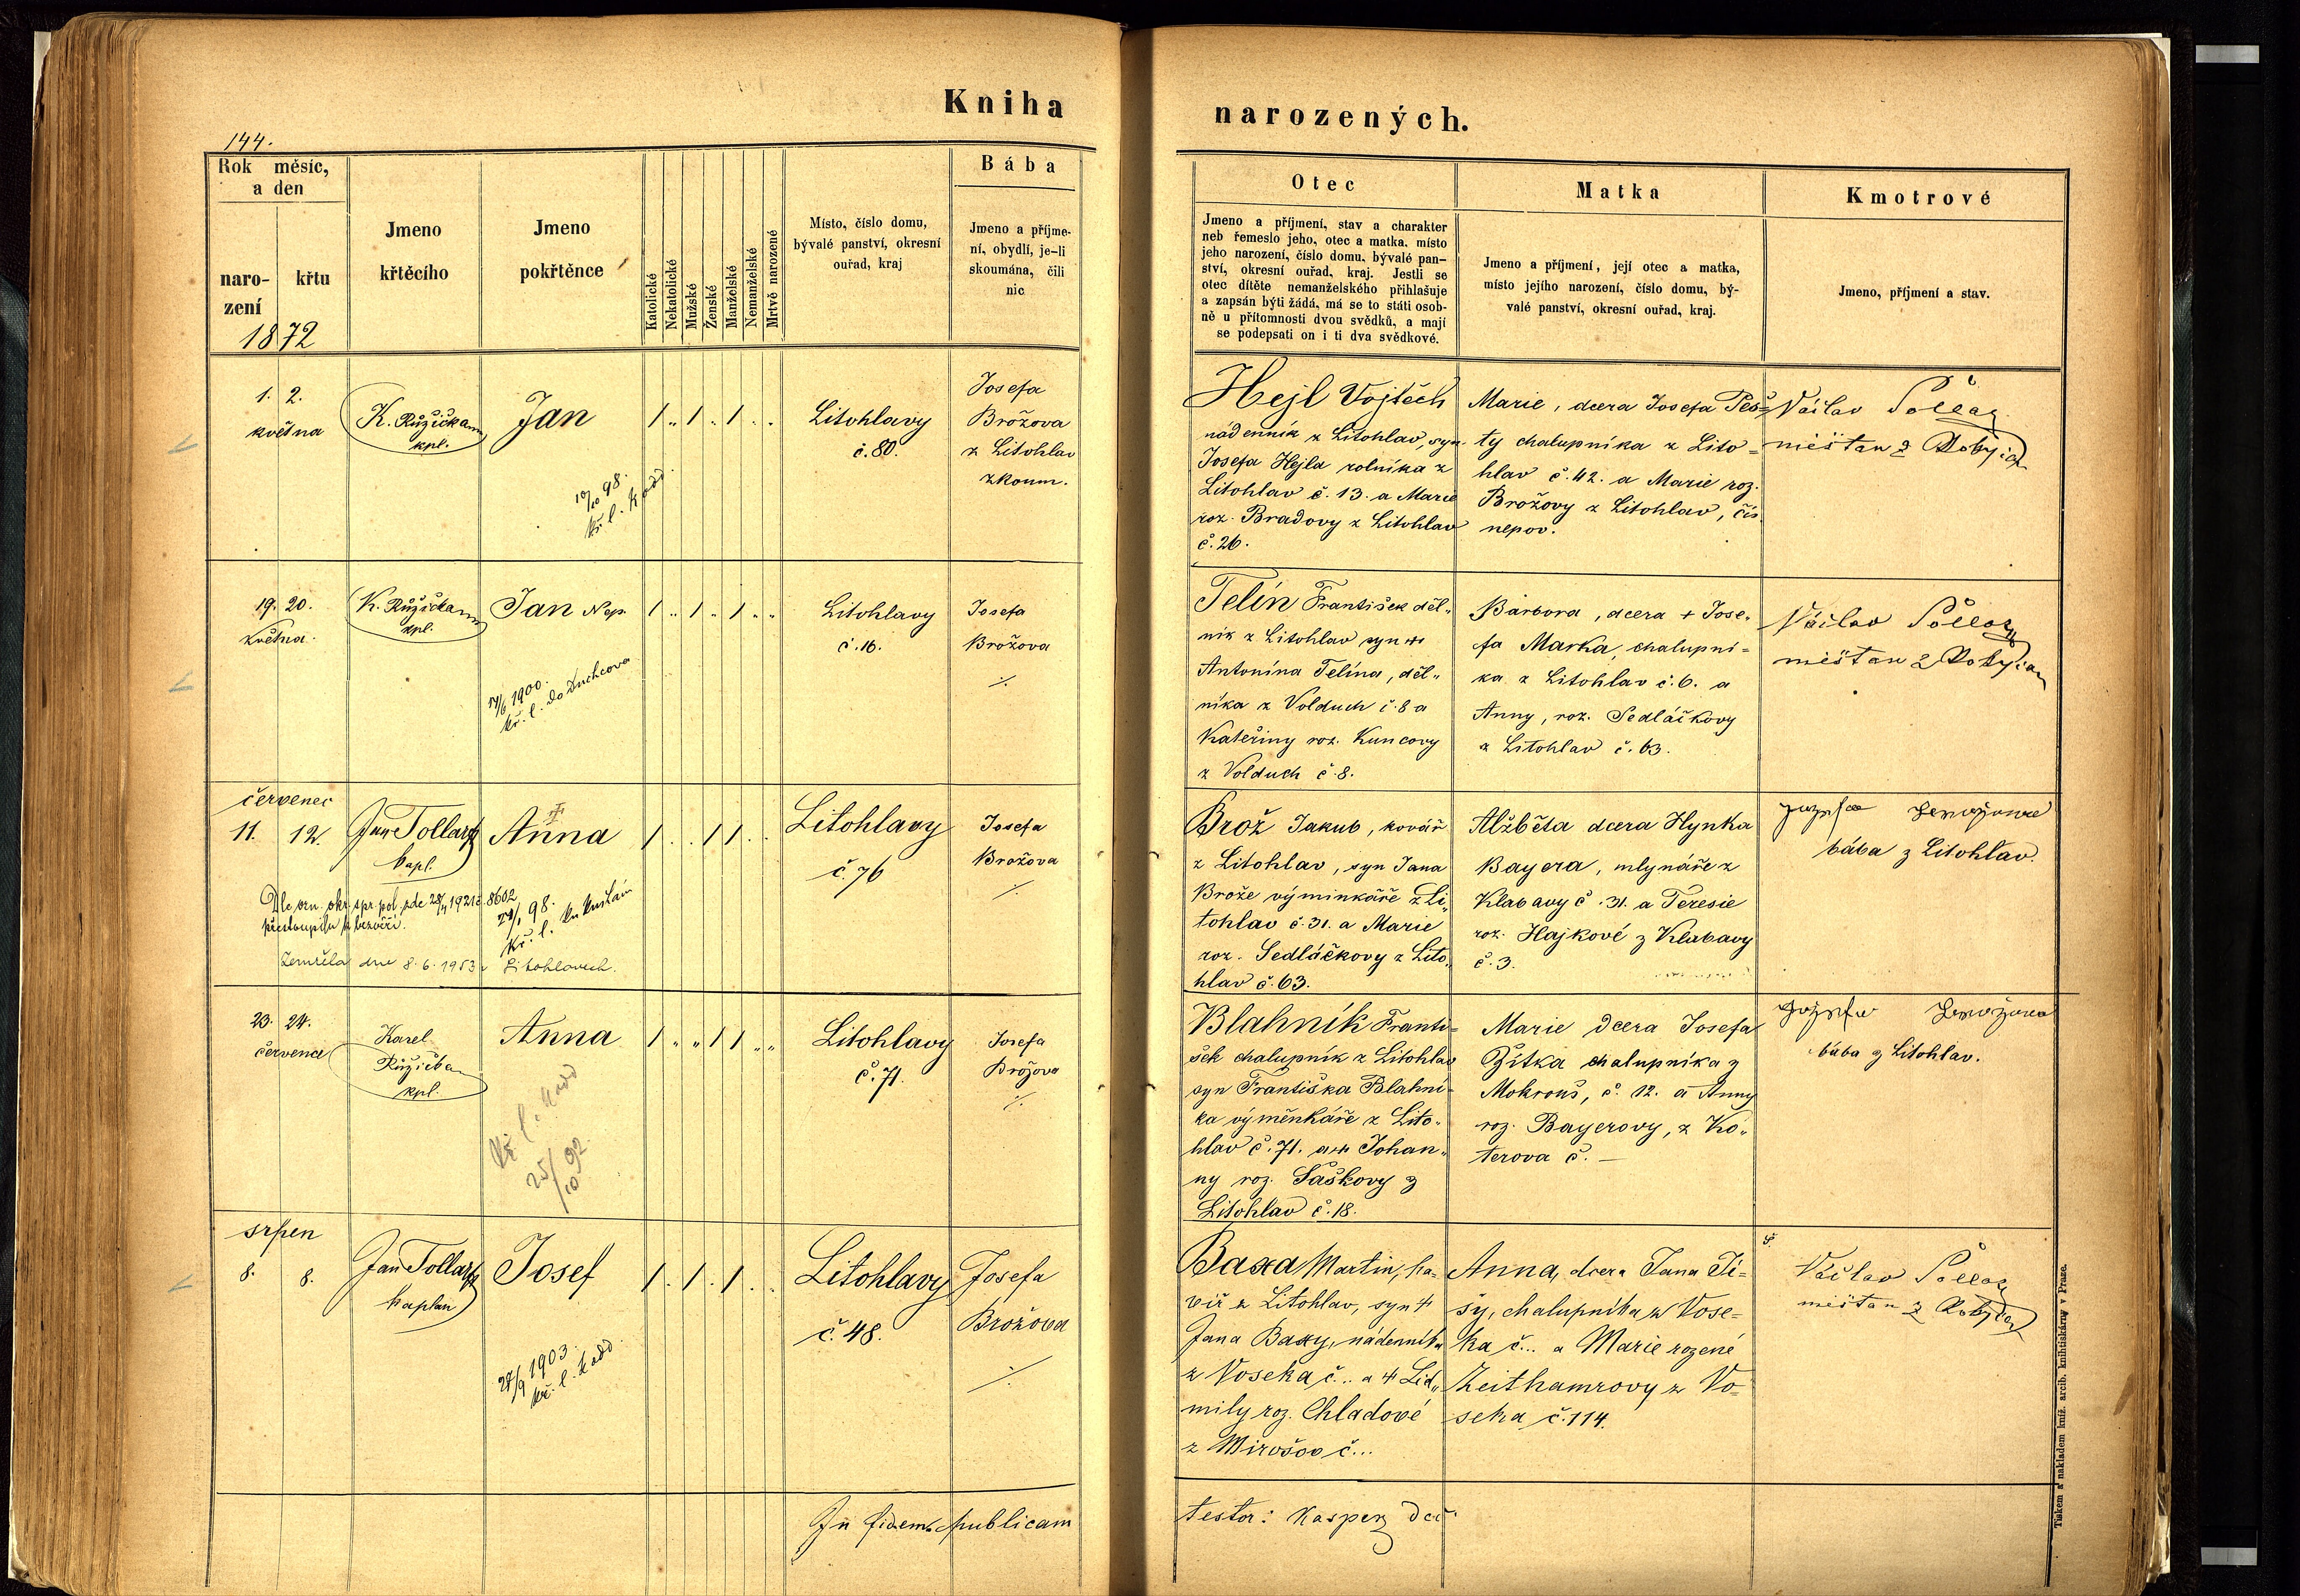 Kniha
narozených.
144.
Rok měsíc,
a den
naro-
zení
křtu
1872
Jmeno
křtěcího
Jmeno
pokřtěnce
Katolické
Nekatolické
Mužské
Ženské
Manželské
Nemanželské
Mrtvě narozené
Místo, číslo domu,
bývalé panství, okresní
ouřad, kraj
Bába
Jmeno a příjme-
ní, obydlí, je-li
skoumána, čili
nic
Otec
Jmeno a příjmení, stav a charakter
neb řemeslo jeho, otec a matka, místo
jeho narození, číslo domu, bývalé pan-
ství, okresní ouřad, kraj. Jestli se
otec dítěte nemanželského přihlašuje
a zapsán býti žádá, má se to státi osob-
ně u přítomnosti dvou svědků, a mají
se podepsati on i ti dva svědkové.
Matka
Jmeno a příjmení, její otec a matka,
místo jejího narození, číslo domu, bý-
valé panství, okresní ouřad, kraj.
Kmotrové
Jmeno, příjmení a stav.
1. 2.
května
K. Růžička
kpl.
Jan
10/10 98.
kř. l. Kadd.
1 „ 1 . 1 . .
Litohlavy
č. 80.
Josefa
Brožova
z Litohlav
zkoum.
Hejl Vojtěch
nádenník z Litohlav, syn
Josefa Hejla rolníka z
Litohlav č. 13. a Marie
roz. Bradovy z Litohlav
č. 26.
Marie, dcera Josefa Peš=
ty chalupníka z Lito=
hlav č. 42. a Marie roz.
Brožovy z Litohlav, čís.
nepov.
Václav
měštan z Rokycan
19. 20.
května.
K. Růžička
kpl.
Jan Nep.
kř. l. do Duchcova
1 „ 1 . 1 „ „
Litohlavy
č. 16.
Josefa
Brožova
./.
Telín František děl„
ník z Litohlav syn +
Antonína Telína, děl„
níka z Volduch č. 8 a
Kateřiny roz. Kuncovy
z Volduch č. 8.
Barbora, dcera + Jose„
fa Marka, chalupní=
ka z Litohlav č. 6. a
Anny, roz. Sedláčkovy
z Litohlav č. 63.
Václav
měštan z Rokycan
červenec
11. 12.
Jan Tollar
kapl.
Anna
1 . . 1 1 . .
Litohlavy
č. 76
Josefa
Brožova
./.
Dle ozn. okr. spr. pol. zde 28/4 1921 č. 8602
přestoupila k bezvěří.
98.
kř. l.
Zemřela dne 8. 6. 1953 v Litohlavech.
Brož Jakub, kovář
z Litohlav, syn Jana
Brože výminkáře z Li„
tohlav č. 31. a Marie
roz. Sedláčkovy z Lito„
hlav č. 63.
Alžběta dcera Hynka
Bayera, mlynáře z
Klabavy č. 31. a Teresie
roz. Hajkové z Klabavy
č. 3.
bába z Litohlav.
23. 24.
července
Karel
Růžička
kpl.
Anna
Kř. l. Kadd
25/10 92
1 „ „ 1 1 „ „
Litohlavy
č. 71.
Josefa
Brožova
./.
Blahník Franti=
šek chalupník z Litohlav
syn Františka Blahní-
ka výměnkáře z Lito„
hlav č. 71. a + Johan„
ny roz. Saskovy z
Litohlav č. 18.
Marie dcera Josefa
Žítka chalupníka z
Mokrouš, č. 12. a Anny
roz. Bayerovy, z Ko„
terova č. —
bába z Litohlav.
srpen
8. 8.
Jan Tollar
kaplan
Josef
1903.
kř. l. Kadd.
1 . 1 . 1 . .
Litohlavy
č. 48.
Josefa
Brožova
./.
Baxa Martin, ha-
víř z Litohlav, syn +
Jana Baxy, nádenníka
z Voseka č... a + Lid„
mily roz. Chladové
z Mirošov č...
Anna, dcera Jana Ji=
šy, chalupníka z Vose-
ka č... a Marie rozené
Zeithamrovy z Vo=
seka č. 114.
Václav
měštan z Rokycan
In fidem publicam
testor: Kasper
Tiskem a nákladem kníž. arcib. knihtiskárny v Praze.